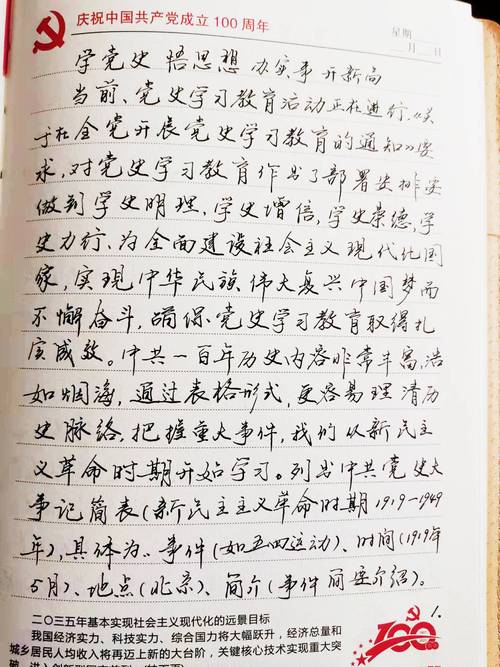 庆祝中国共产党成立100周年
星期
月 日
学党史 悟思想 办实事 开新局
当前、党史学习教育活动正在进行。《关
于在全党开展党史学习教育的通知》要
求,对党史学习教育作出了部署安排要
做到学史明理,学史增信,学史崇德,学
史力行、为全面建设社会主义现代化国
家,实现中华民族伟大复兴中国梦而
不懈奋斗,确保党史学习教育取得扎
实成效。中共一百年历史内容非常丰富,浩
如烟海,通过表格形式,更容易理清历
史脉络,把握重大事件,我们从新民主
义革命时期开始学习。列出中共党史大
事记简表(新民主主义革命时期1919-1949
年),具体为:事件(如五四运动)、时间(1919年
5月)、地点(北京)、简介(事件简要介绍)。
1.
二〇三五年基本实现社会主义现代化的远景目标
我国经济实力、科技实力、综合国力将大幅跃升,经济总量和
城乡居民人均收入将再迈上新的大台阶,关键核心技术实现重大突
100